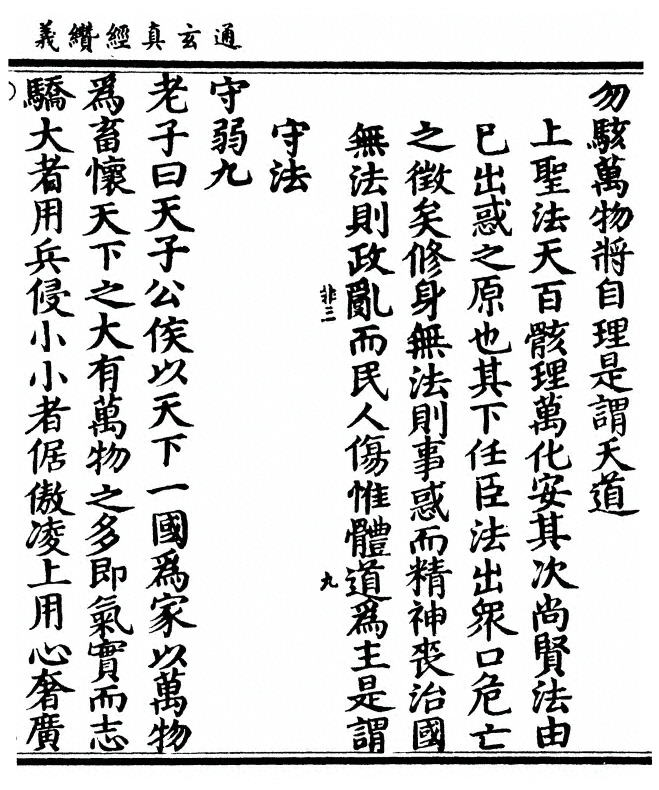 通玄真經纘義
勿駭萬物將自理是謂天道
上聖法天百骸理萬化安其次尚賢法由
已出惑之原也其下任臣法出衆口危亡
之徵矣修身無法則事惑而精神喪治國
無法則政亂而民人傷惟體道爲主是謂
非三
九
守法
守弱九
老子曰天子公侯以天下一國爲家以萬物
爲畜懷天下之大有萬物之多即氣實而志
驕大者用兵侵小小者倨傲凌上用心奢廣